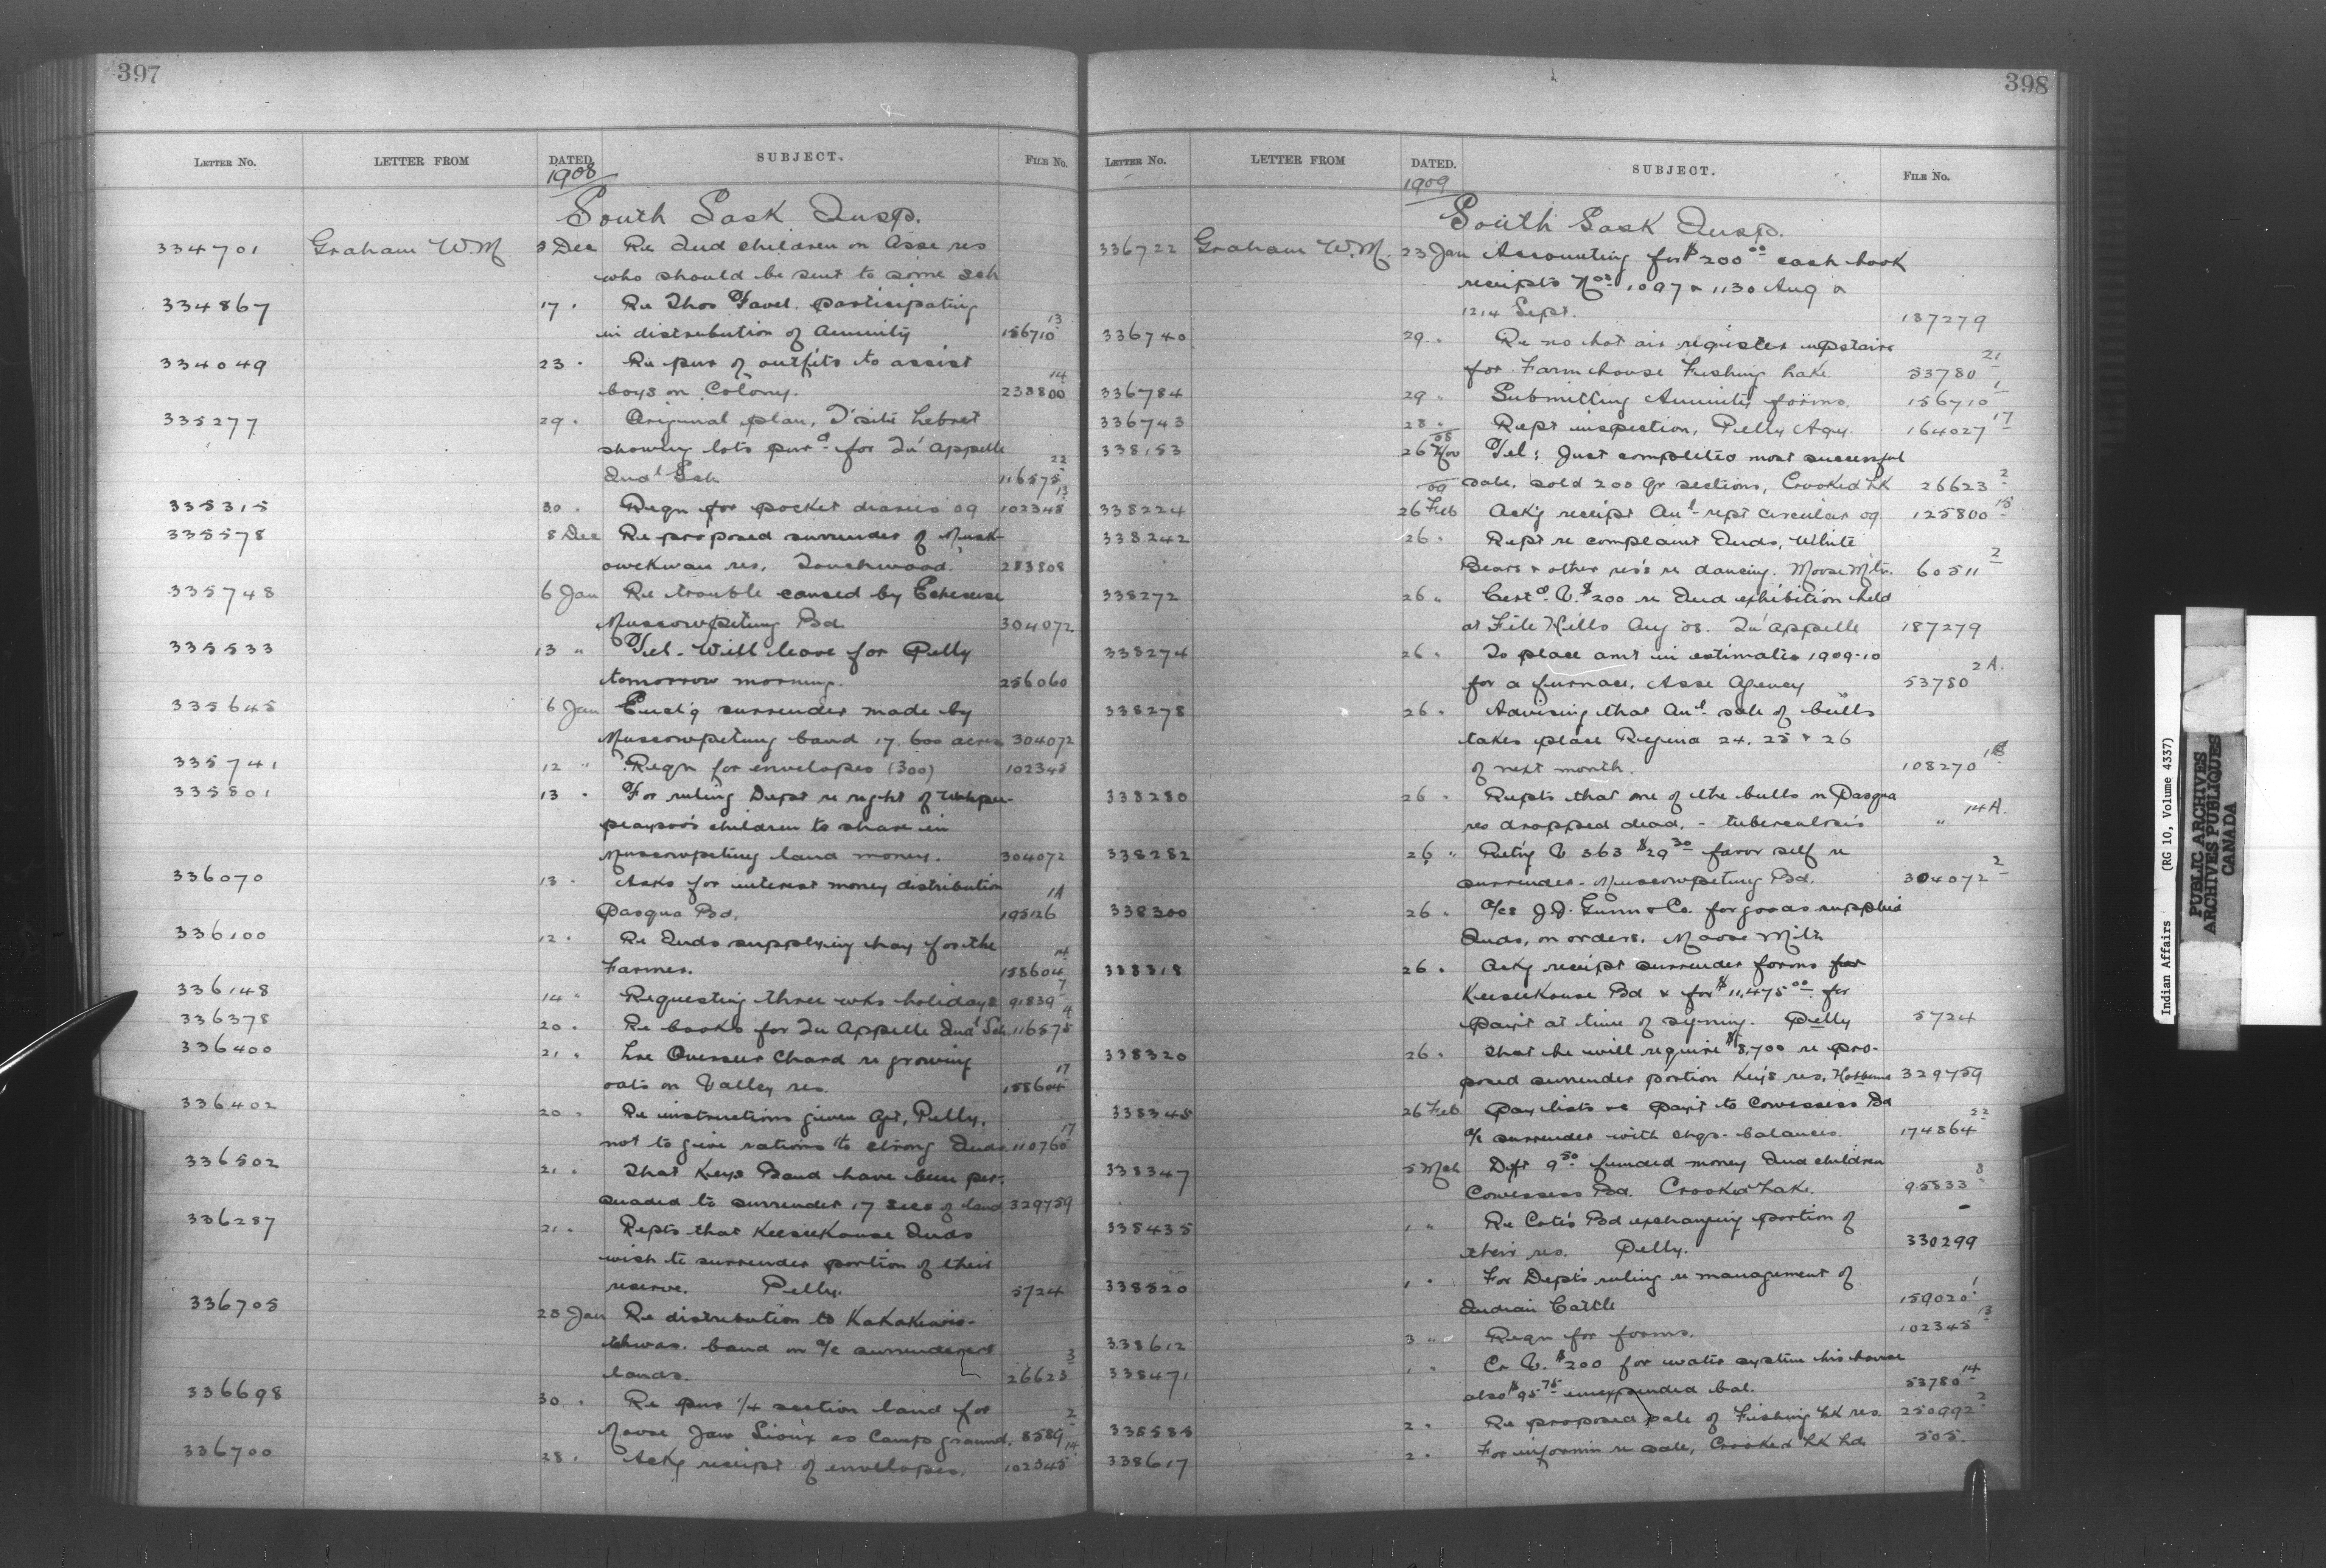 397
LETTER No. LETTER FROM DATED. SUBJECT. FILE No.
1908
South Sask Insp.
334701 Graham W.M. 3 Dec Re Ind children on Asse res
who should be sent to some sch
334867 17 " Re Thos Favel participating
in distribution of Annuity 156710 13
334049 23 " Re pur of outfits to assist
boys on Colony. 233800 14
335277 29 " Original plan, T'site Lebret
showing lots purd for Qu'Appelle
Indl Sch 116575 22
335315 30 " Reqn for pocket diaries 09 102345 13
335578 8 Dec Re proposed surrender of Musk-
owekwan res, Touchwood. 283808
335748 6 Jan Re trouble caused by
Muscowpetung Bd. 304072
335533 13 " Tel. Will leave for Pelly
tomorrow morning. 256060
335645 6 Jan Encl'g surrender made by
Muscowpetung band 17,600 acres 304072
335741 12 " Reqn for envelopes (300) 102345
335801 13 " For ruling Dept re right of
children to share in
Muscowpetung land money. 304072
336070 13 " Asks for interest money distribution
Pasqua Bd. 195126 1A
336100 12 " Re Inds supplying hay for the
Farmer. 158604 14
336148 14 " Requesting three wks holidays 91839 7
336378 20 " Re books for Qu Appelle Indl Sch 116575 4
336400 21 " Lre Overseer Chard re growing
oats on Valley res. 158604 17
336402 20 " Re instructions given Agt, Pelly,
not to give rations to strong Inds. 110765 17
336502 21 " That Keys Band have been per-
suaded to surrender 17 secs of land 329759
336287 21 " Repts that Keeseekouse Inds
wish to surrender portion of their
reserve. Pelly. 5724
336705 25 Jan Re distribution to Kakakewis-
band on a/c surrendered
lands. 26623 3
336698 30 " Re pur 1/4 section land for
Moose Jaw Sioux as Camp ground. 8589 2
336700 28 " Ackg receipt of envelopes. 102345 14
398
LETTER No. LETTER FROM DATED. SUBJECT. FILE No.
1909
South Sask Insp.
336722 Graham W.M. 23 Jan Accounting for $200 00 cash book
receipts Nos 1097 & 1130 Aug &
1214 Sept. 187279
336740 29 " Re no hot air register upstairs
for Farm house Fishing Lake. 53780 21
336784 29 " Submitting Annuity forms. 156710 1
336743 28 " Rept inspection, Pelly Agy. 164027 17
338153 08 26 Nov Tel: Just completed most successful
09 sale, sold 200 qr sections, Crooked Lk 26623 2
338224 26 Feb Ackg receipt Anl rept circular 09 125800 15
338242 26 " Rept re complaint Inds, White
Bears & other res's re dancing. Moose Mtn. 60511 2
338272 26 " Certd V. $200 re Ind exhibition held
at File Hills Aug '08. Qu'Appelle 187279
338274 26 " To place amt in estimates 1909-10
for a furnace, Asse Agency 53780 2A.
338278 26 " Advising that Anl sale of bulls
takes place Regina 24, 25 & 26
of next month. 108270
338280 26 " Repts that one of the bulls on Pasqua
res dropped dead, - tuberculosis " 14A.
338282 26 " Retg V 363 $29 30 favor self re
surrender. Muscowpetung Bd. 304072 2
338300 26 " a/cs J.D. Gunn & Co. for goods supplied
Inds, on orders. Moose Mtn
338318 26 " Ackg receipt surrender forms for
Keeseekouse Bd & for $11,475 00 for
paymt at time of signing. Pelly 5724
338320 26 " That he will require $8,700 re pro-
posed surrender portion Key's res, 329759
338345 26 Feb Pay lists re paymt to Cowessess Bd
a/c surrender with chqs. balances. 174864 22
338347 5 Mch Dft 9 50 funded money Ind children
Cowessess Bd. Crooked Lake. 95833 8
338435 1 " Re Cote's Bd exchanging portion of
their res. Pelly. 330299
338520 1 " For Dept's ruling re management of
Indian Cattle 159020 1
338612 3 " Reqn for forms. 102345 13
338471 1 " Cr V. $200 for water system his house
also $95 75 unexpended bal. 53780 14
338585 2 " Re proposed sale of Fishing Lk res. 250992 2
338617 2 " For informn re sale, Crooked Lk lds 505.
Indian Affairs (RG 10, Volume 4337)
PUBLIC ARCHIVES
ARCHIVES PUBLIQUES
CANADA